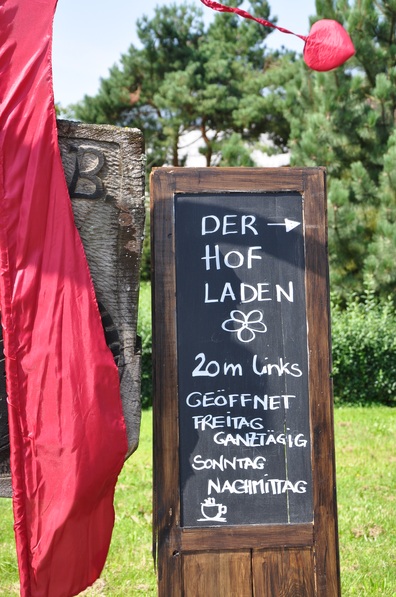 B
DER →
HOF
LADEN
20m links
GEÖFFNET
FREITAG
GANZTÄGIG
SONNTAG
NACHMITTAG